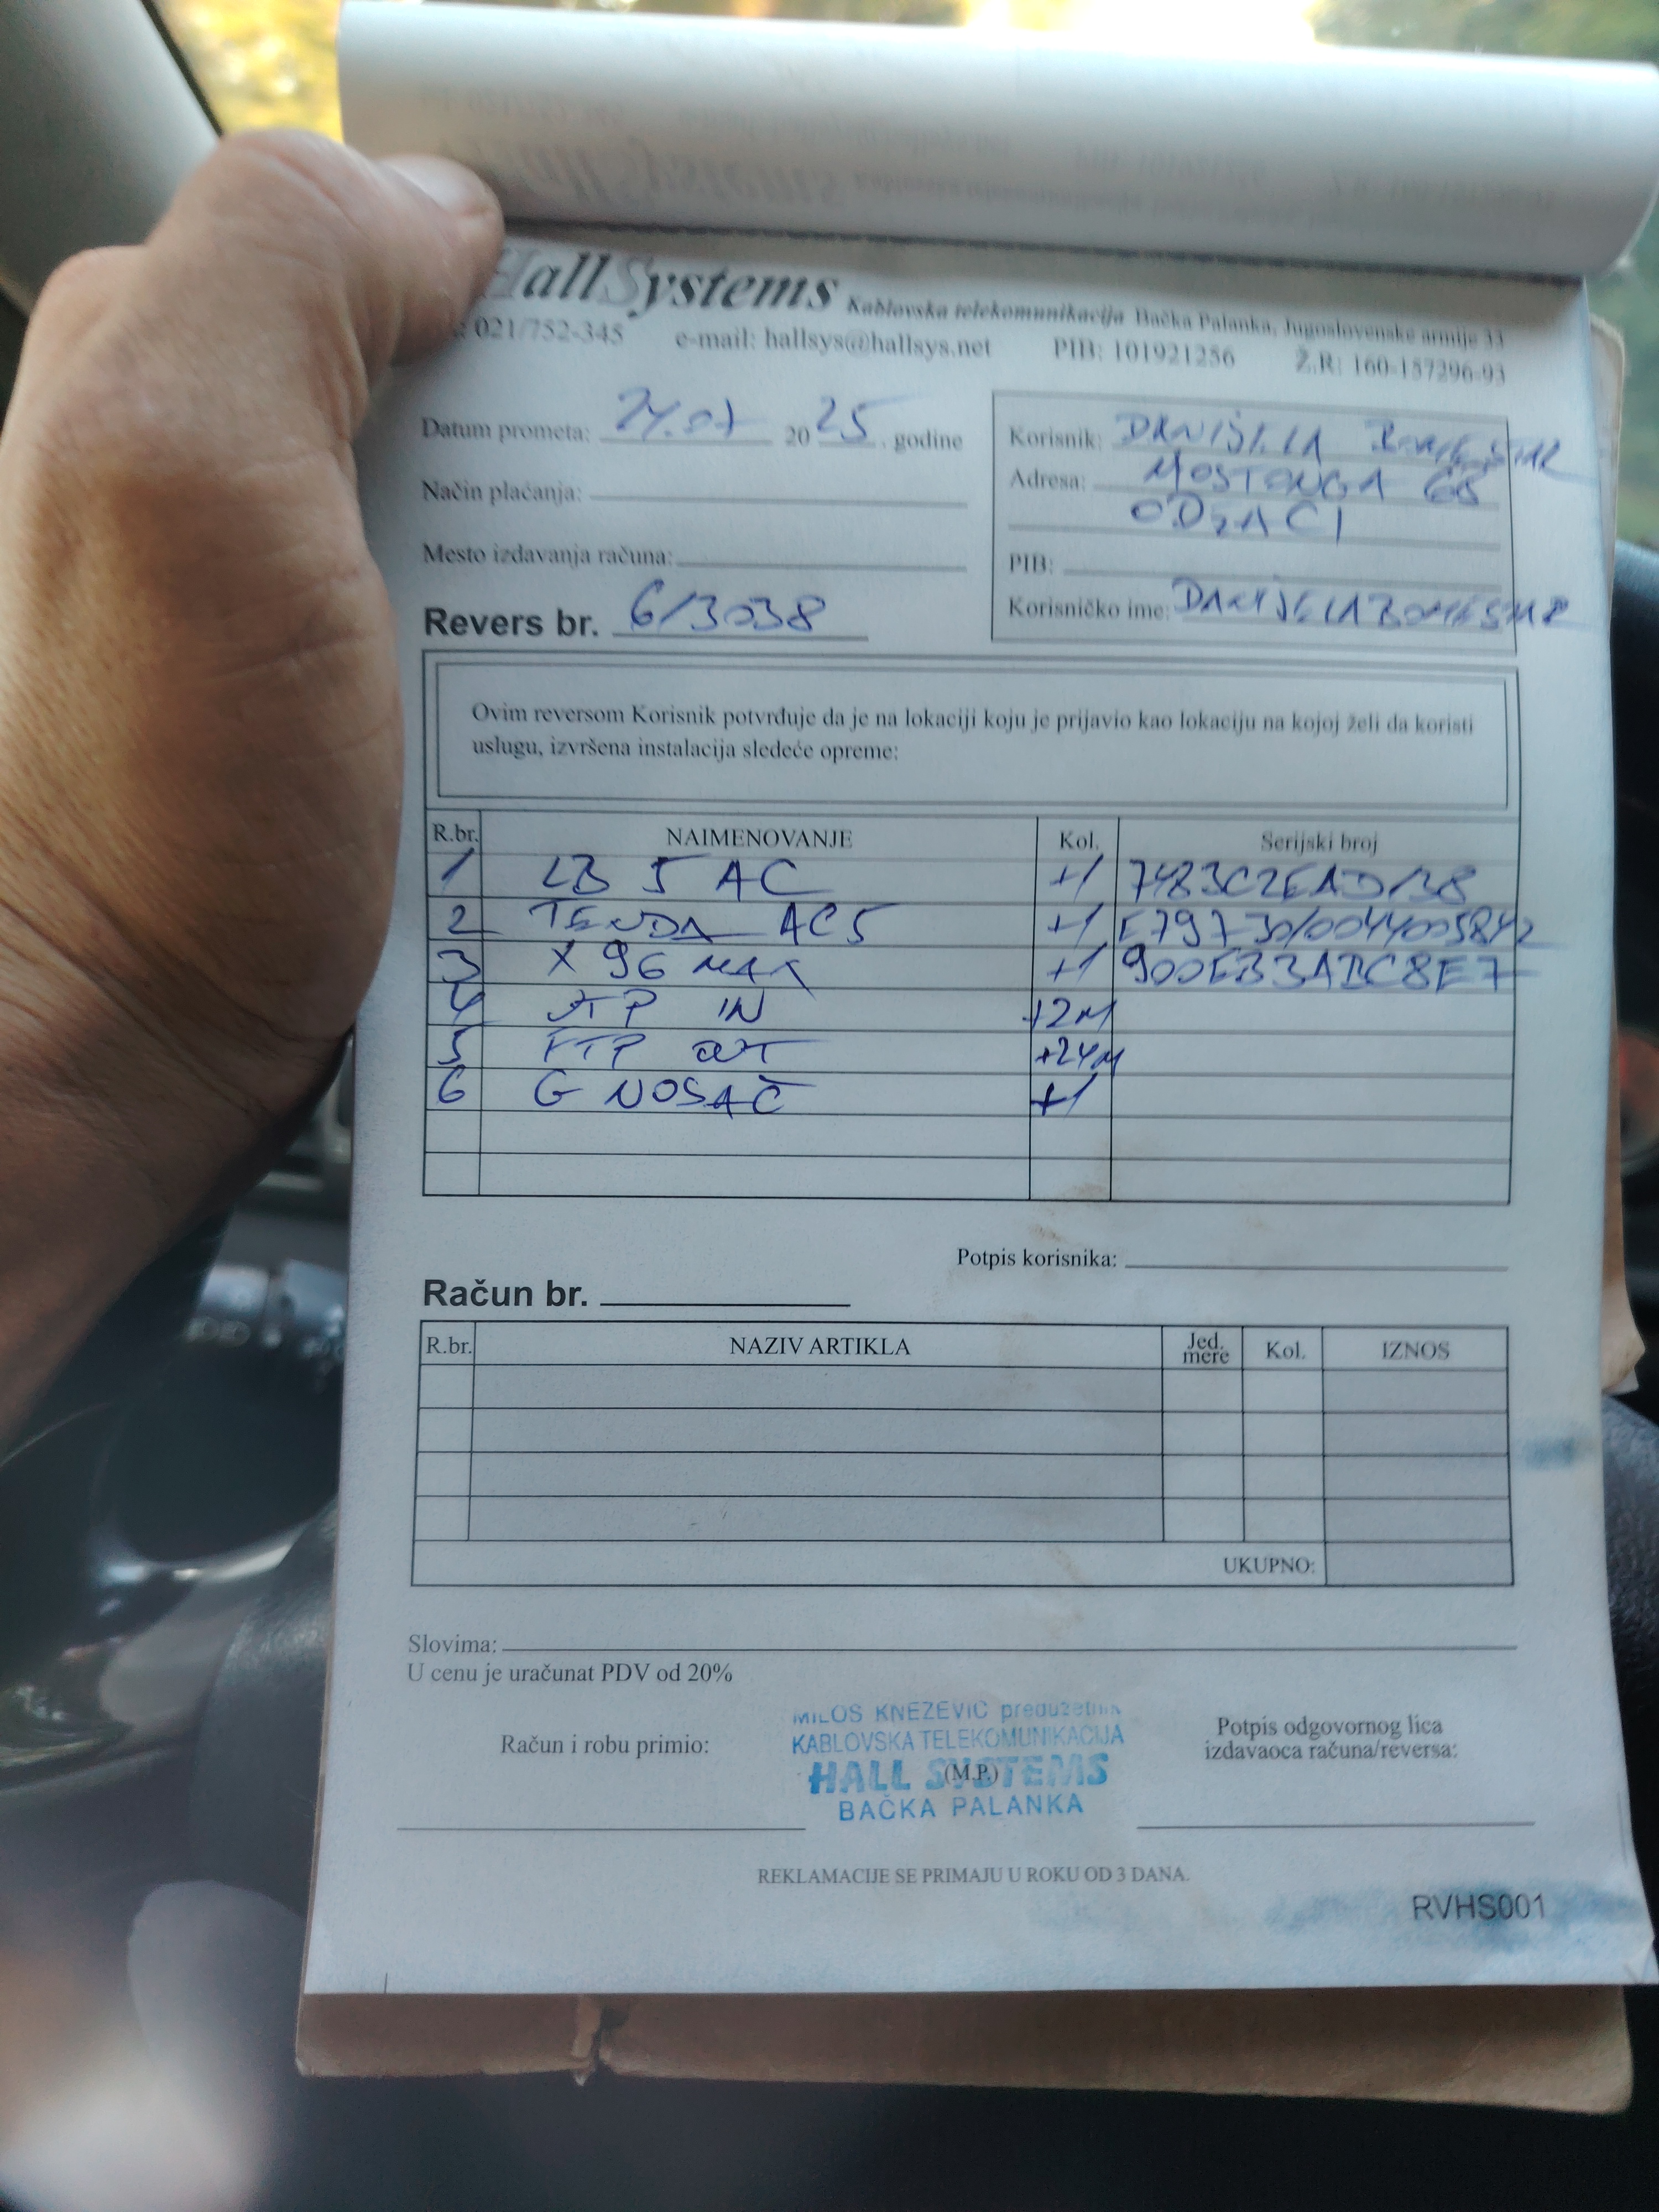 HallSystems Kablovska telekomunikacija Bačka Palanka, Jugoslovenske armije 33
021/752-345 e-mail: hallsys@hallsys.net PIB: 101921256 Ž.R: 160-157296-93
Datum prometa: 24.07 2025. godine
Način plaćanja:
Mesto izdavanja računa:
Revers br. 6/3038
Korisnik: DANIJELA
Adresa: MOSTONGA 68
ODZACI
PIB:
Korisničko ime:
Ovim reversom Korisnik potvrđuje da je na lokaciji koju je prijavio kao lokaciju na kojoj želi da koristi
uslugu, izvršena instalacija sledeće opreme:
R.br. NAIMENOVANJE Kol. Serijski broj
1 LB 5 AC +1
2 TENDA AC5 +1
3 X 96 MAX +1 900EB3ABC8E7
4 FTP IN +2M
5 FTP OUT +24M
6 G NOSAČ +1
Potpis korisnika:
Račun br.
R.br. NAZIV ARTIKLA Jed. mere Kol. IZNOS
UKUPNO:
Slovima:
U cenu je uračunat PDV od 20%
Račun i robu primio:
MILOS KNEZEVIC preduzetnik
KABLOVSKA TELEKOMUNIKACIJA
HALL SYSTEMS
(M.P.)
BAČKA PALANKA
Potpis odgovornog lica
izdavaoca računa/reversa:
REKLAMACIJE SE PRIMAJU U ROKU OD 3 DANA.
RVHS001